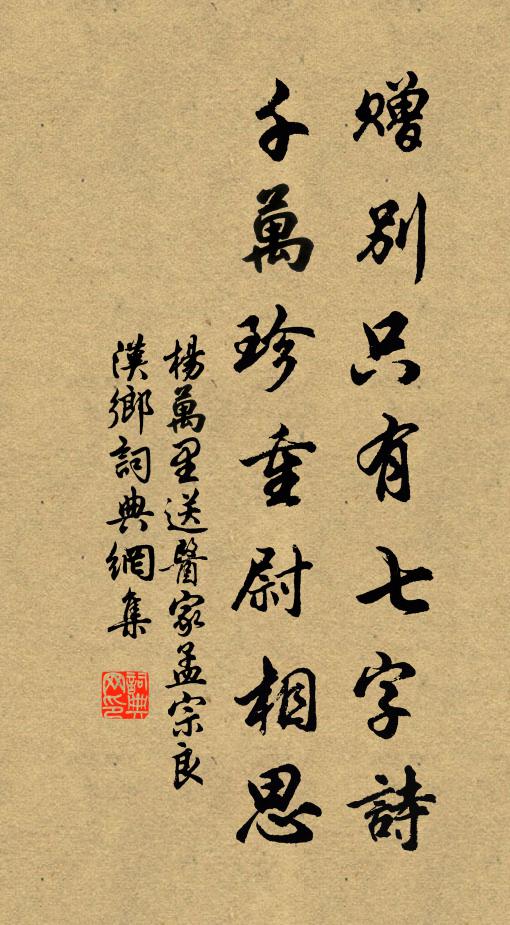 赠別只有七字詩
千萬珍重尉相思
楊萬里送醫家孟宗良
漢鄉詞典網集
詞典網印